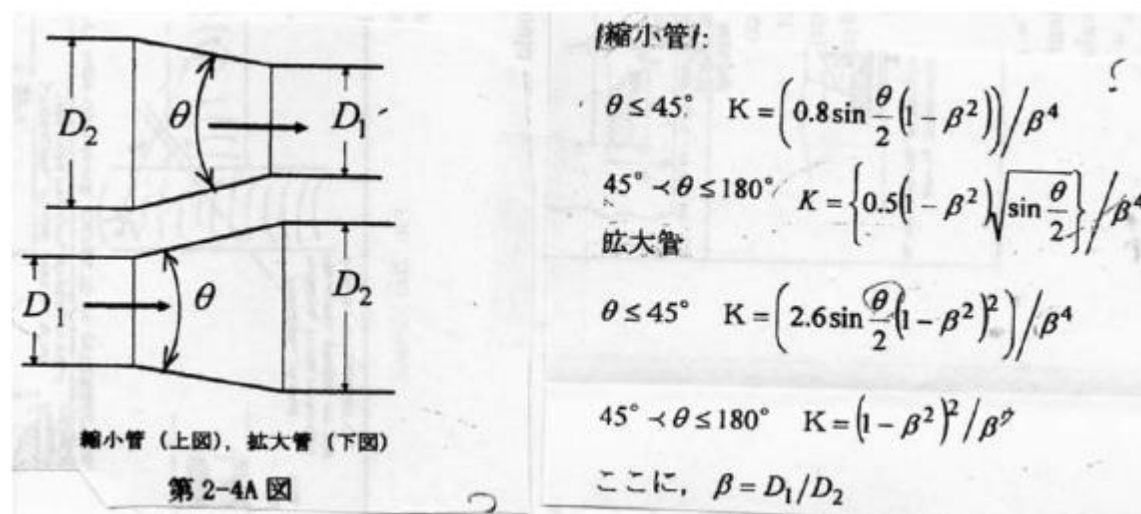 D₂
θ
D₁
D₁
θ
D₂
縮小管 (上図), 拡大管 (下図)
第 2-4A 図
縮小管:
θ ≤ 45° K = (0.8 sin θ/2 (1 − β²)) / β⁴
45° ≺ θ ≤ 180° K = {0.5(1 − β²)√(sin θ/2)} / β⁴
拡大管
θ ≤ 45° K = (2.6 sin θ/2 (1 − β²)²) / β⁴
45° ≺ θ ≤ 180° K = (1 − β²)² / β
ここに, β = D₁/D₂